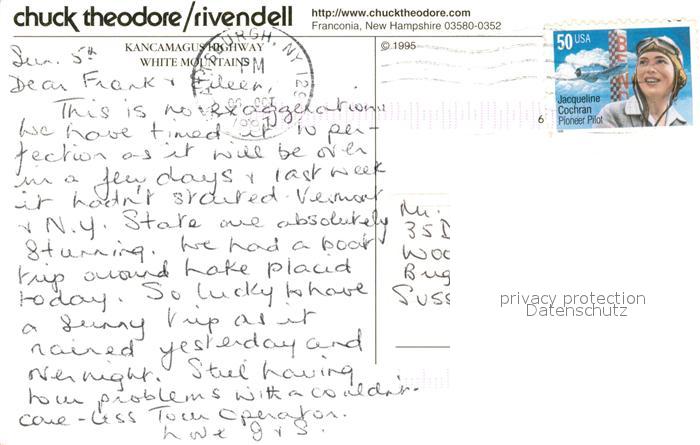 chuck theodore/rivendell
http://www.chucktheodore.com
Franconia, New Hampshire 03580-0352
KANCAMAGUS HIGHWAY
WHITE MOUNTAINS
© 1995
PM
50 USA
Jacqueline
Cochran
Pioneer Pilot
Sun. 5th
Dear Frank & Eileen,
This is no exaggeration
we have timed it to per-
fection as it will be over
in a few days & last week
it hadn't started. Vermont
& N.Y. State are absolutely
stunning. We had a boat
trip around Lake Placid
today. So lucky to have
a sunny trip as it
rained yesterday and
overnight. Still having
tour problems with a couldn't-
care-less Tour Operator.
Love J & S.
Mr.
35
Woo
Bug
Suss
privacy protection
Datenschutz